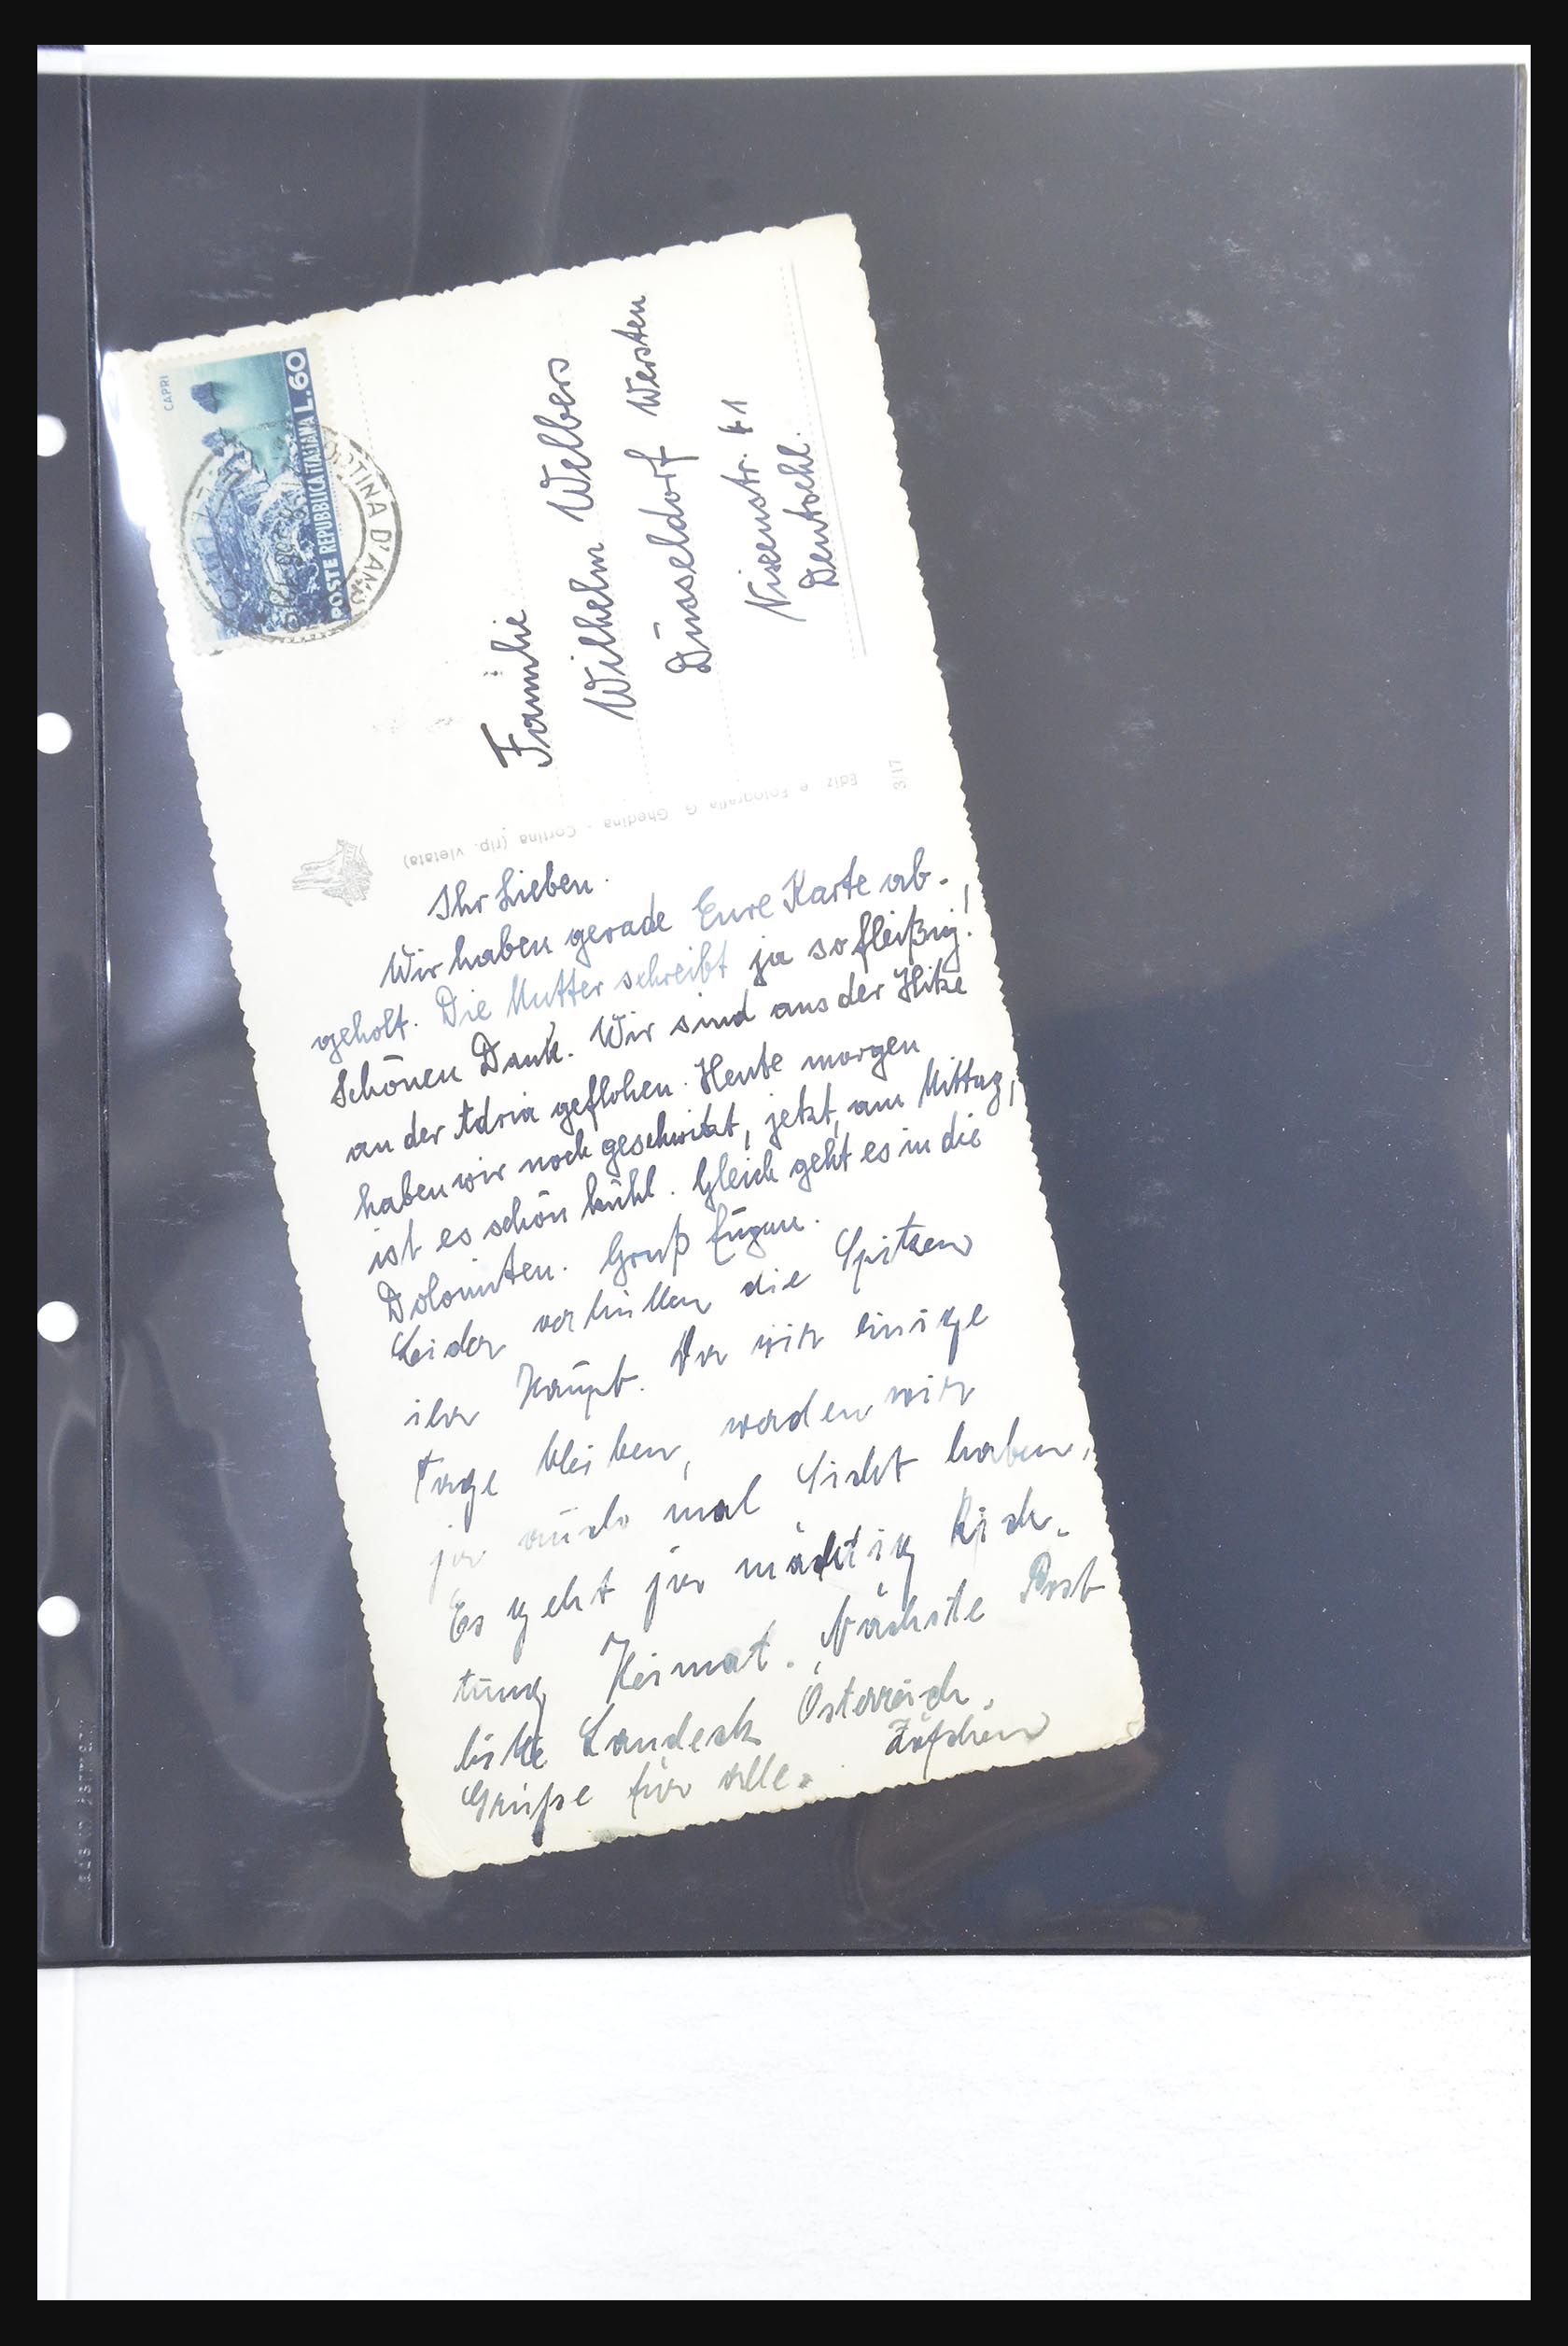 CAPRI
POSTE REPUBBLICA ITALIANA L.60
CORTINA D'AMP
Familie
Wilhelm Welbers
Düsseldorf Wersten
Nixenstr. 41
Deutschl.
Ediz. e Fotografia G. Ghedina - Cortina (rip. vietata)
3/17
Ihr Lieben.
Wir haben gerade Eure Karte ab-
geholt. Die Mutter schreibt ja so fleißig!
Schönen Dank. Wir sind aus der Hitze
an der Adria geflohen. Heute morgen
haben wir noch geschwitzt, jetzt, am Mittag,
ist es schön kühl. Gleich geht es in die
Dolomiten. Gruß
Leider verhüllen die Spitzen
ihr Haupt. Da wir einige
Tage bleiben, werden wir
ja auch mal Sicht haben.
Es geht ja mächtig Rich-
tung Heimat. Nächste Post
bitte Landeck Österreich.
Grüße für alle.